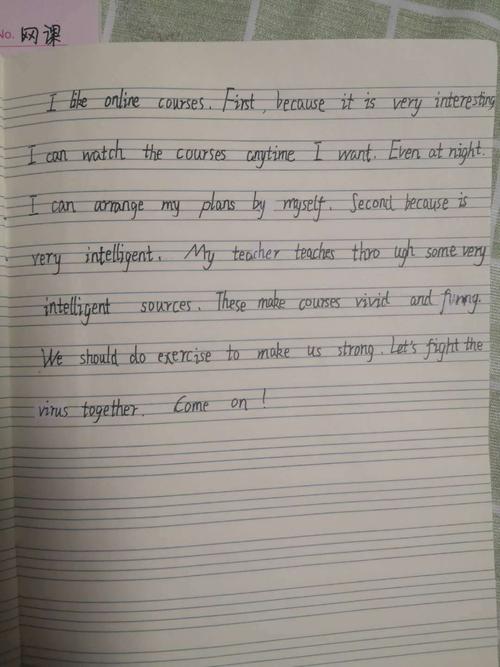 No. 网课
I like online courses. First, because it is very interesting
I can watch the courses anytime I want. Even at night.
I can arrange my plans by myself. Second because is
very intelligent. My teacher teaches thro ugh some very
intelligent sources. These make courses vivid and funny.
We should do exercise to make us strong. Let's fight the
virus together. Come on!